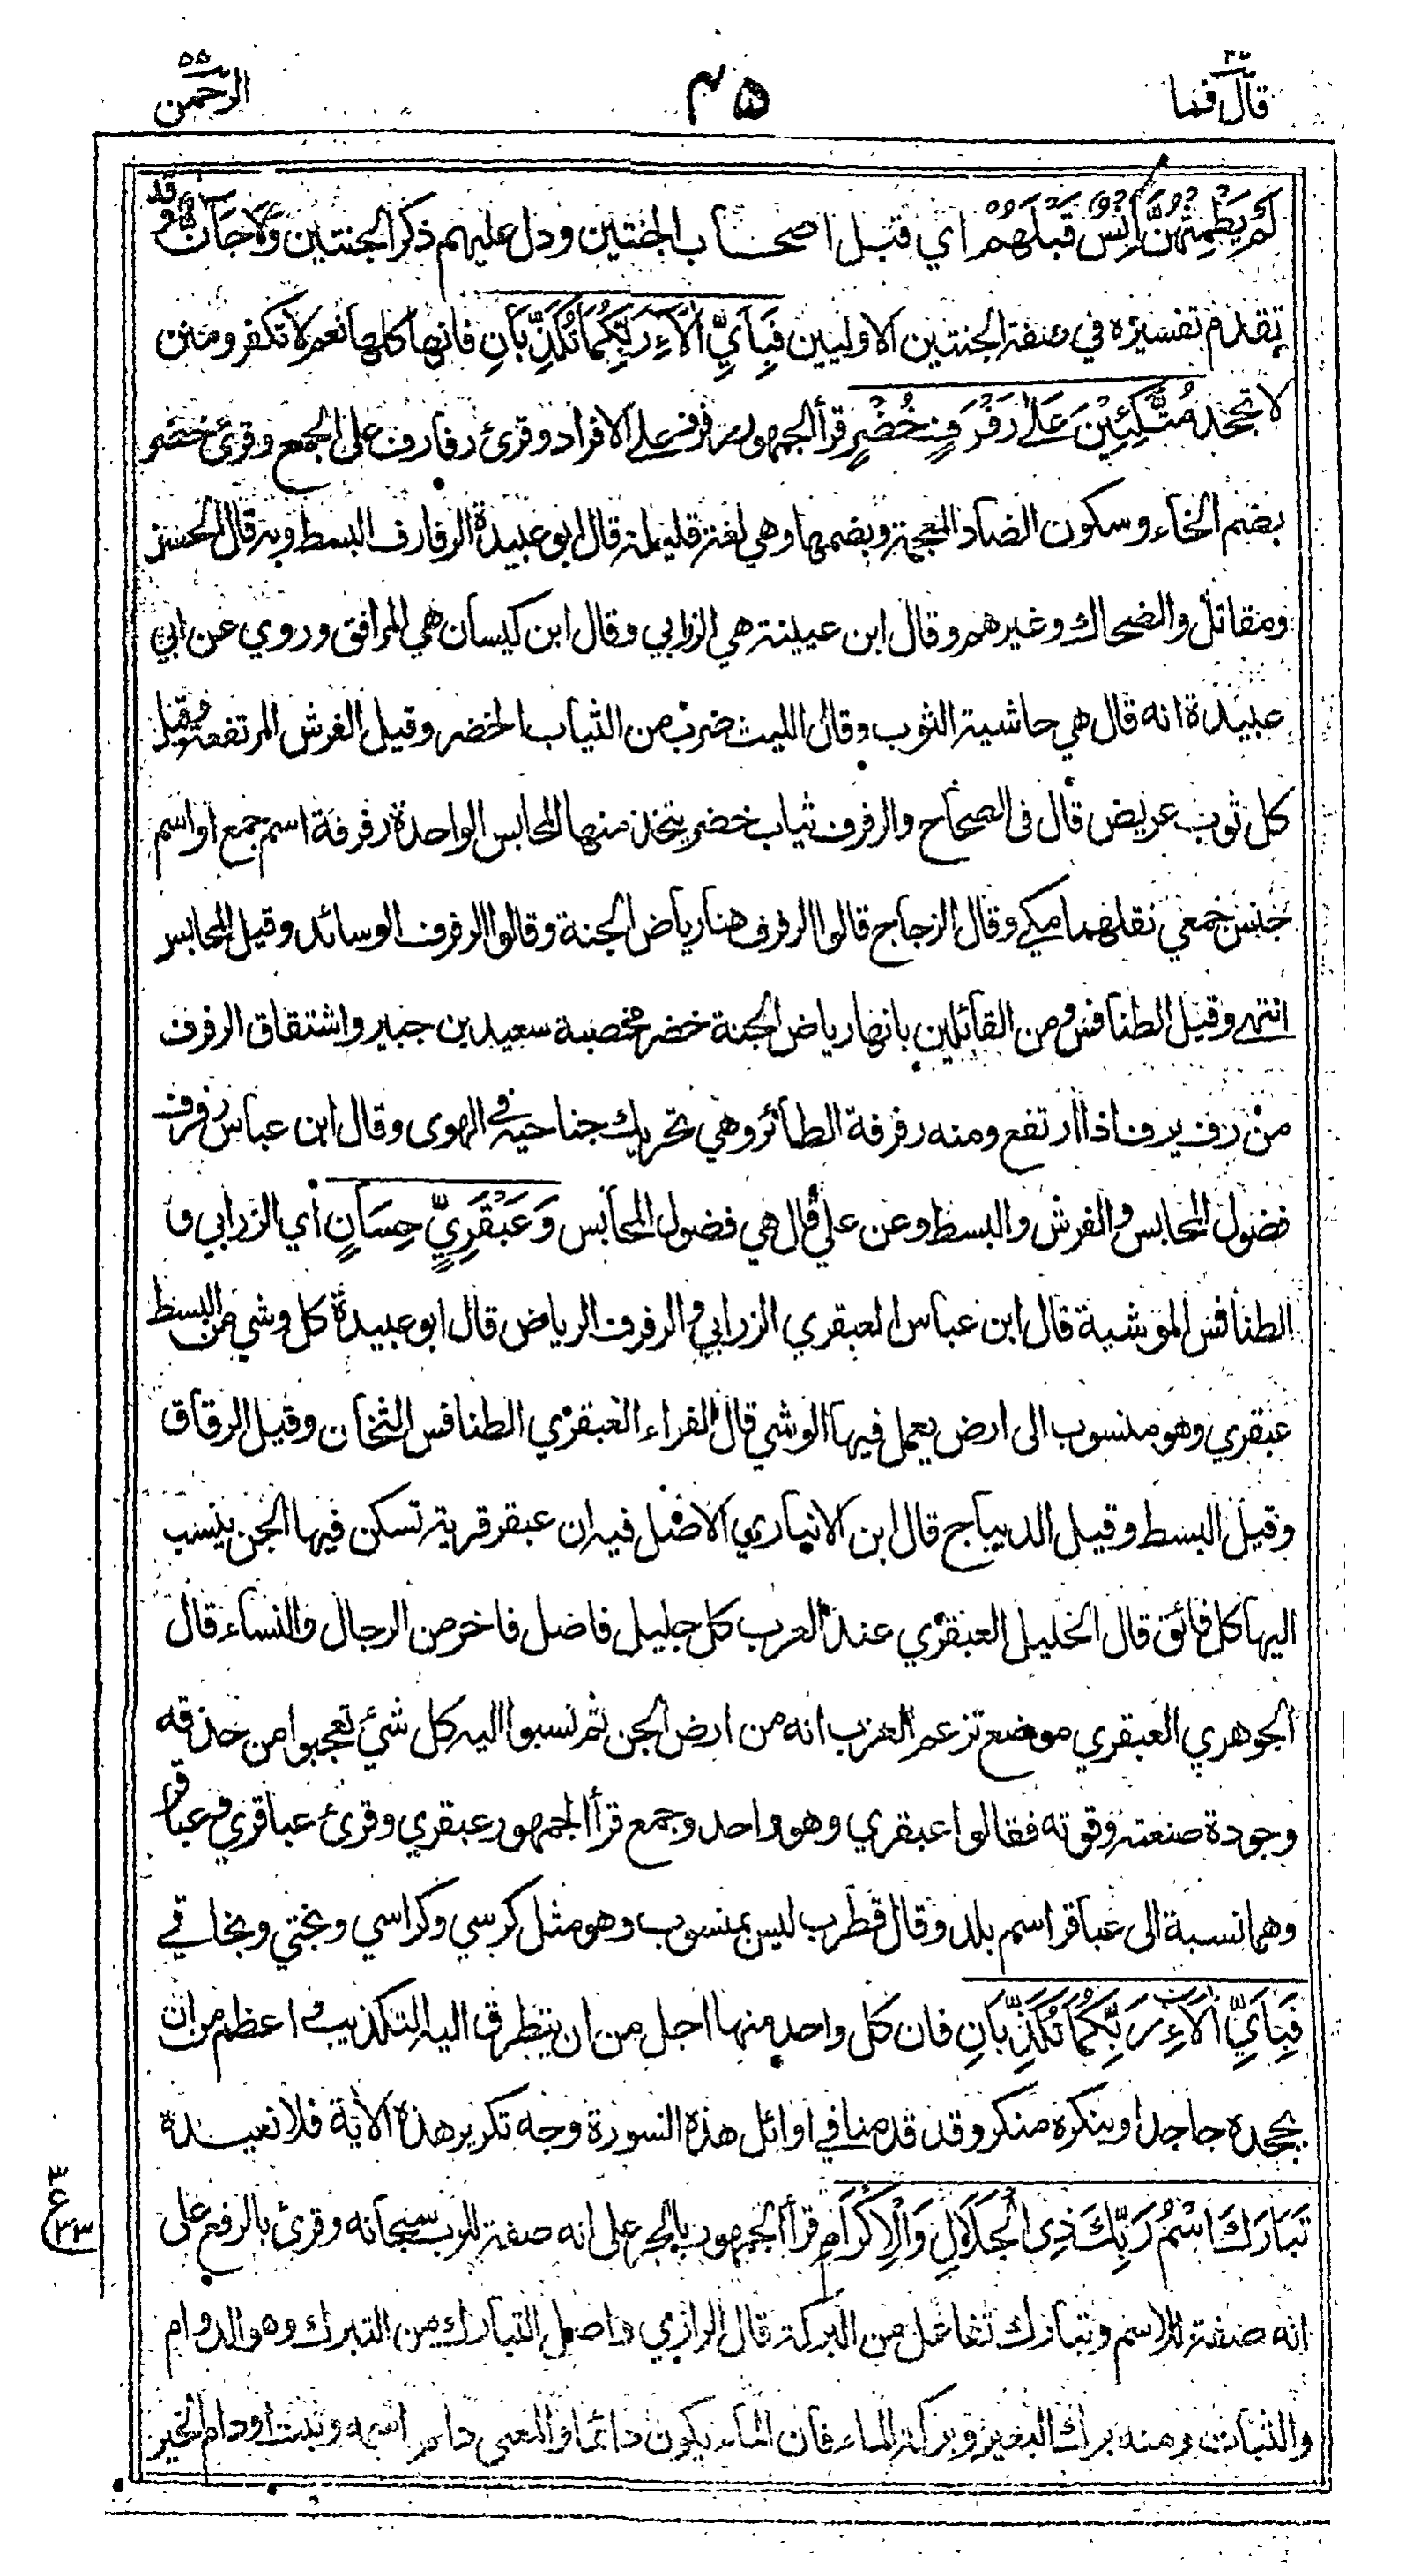 قال فما ٢٧
٤٥
الرحمن ٥٥
لَمْ يَطْمِثْهُنَّ إِنْسٌ قَبْلَهُمْ اي قبل اصحاب الجنتين ودل عليهم ذكر الجنتين وَلَا جَانٌّ وقد
تقدم تفسيره في صفة الجنتين الاوليين فَبِأَيِّ اٰلَاءِ رَبِّكُمَا تُكَذِّبَانِ فانها كلها نعم لا تكفر ومنن
لا تجحد مُتَّكِئِيْنَ عَلٰى رَفْرَفٍ خُضْرٍ قرأ الجمهور رفرف على الافراد وقرئ رفارف على الجمع وقرئ خضر
بضم الخاء وسكون الضاد المعجمة وبضمها وهي لغة قليلة قال ابو عبيدة الرفارف البسط وبه قال الحسن
ومقاتل والضحاك وغيرهم وقال ابن عيينة هي الزرابي وقال ابن كيسان هي المرافق وروي عن ابي
عبيدة انه قال هي حاشية الثوب وقال الليث ضرب من الثياب الخضر وقيل الفرش المرتفعة وقيل
كل ثوب عريض قال فى الصحاح والرفرف ثياب خضر يتخذ منها المحابس الواحدة رفرفة اسم جمع او اسم
جنس جمعي نقلهما مكي وقال الزجاج قالوا الرفرف هنا رياض الجنة وقالوا الرفرف الوسائد وقيل المحابس
انتهى وقيل الطنافس ومن القائلين بانها رياض الجنة خضر مخصبة سعيد بن جبير واشتقاق الرفرف
من رف يرف اذا ارتفع ومنه رفرفة الطائر وهي تحريك جناحيه في الهوى وقال ابن عباس رفرف
فضول المحابس والفرش والبسط وعن علي قال هي فضول المحابس وَعَبْقَرِيٍّ حِسَانٍ اي الزرابي و
الطنافس الموشية قال ابن عباس العبقري الزرابي والرفرف الرياض قال ابو عبيدة كل وشي من البسط
عبقري وهو منسوب الى ارض يعمل فيها الوشي قال الفراء العبقري الطنافس الثخان وقيل الرقاق
وقيل البسط وقيل الديباج قال ابن الانباري الاصل فيه ان عبقر قرية تسكن فيها الجن ينسب
اليها كل فائق قال الخليل العبقري عند العرب كل جليل فاضل فاخر من الرجال والنساء قال
الجوهري العبقري موضع تزعم العرب انه من ارض الجن ثم نسبوا اليه كل شيء تعجبوا من حذقه
وجودة صنعته وقوته فقالوا عبقري وهو واحد وجمع قرأ الجمهور عبقري وقرئ عباقري وعباقر
وهما نسبة الى عباقر اسم بلد وقال قطرب ليس بمنسوب وهو مثل كرسي وكراسي وبختي وبخاتي
فَبِأَيِّ اٰلَاءِ رَبِّكُمَا تُكَذِّبَانِ فان كل واحد منها اجل من ان يتطرق اليه التكذيب و اعظم من ان
يجحده جاحد او ينكره منكر وقد قدمنا في اوائل هذه السورة وجه تكرير هذه الاية فلا نعيده
تَبَارَكَ اسْمُ رَبِّكَ ذِى الْجَلَالِ وَالْاِكْرَامِ قرأ الجمهور بالجر على انه صفة للرب سبحانه وقرئ بالرفع على
انه صفة للاسم وتبارك تفاعل من البركة قال الرازي واصل التبارك من التبرك وهو الدوام
والثبات ومنه برك البعير وبركة الماء فان الماء يكون دائما والمعنى دام اسمه وثبت او دام الخير